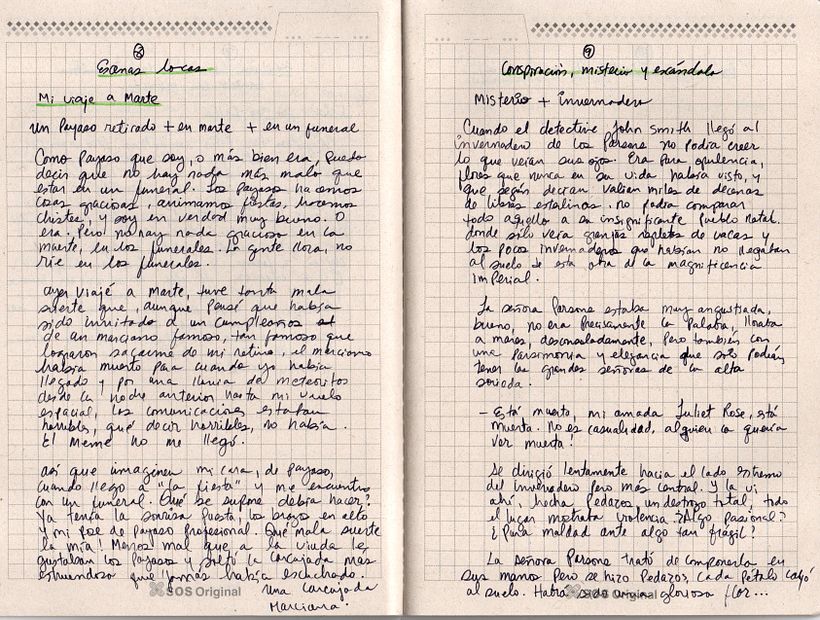 8
Escenas locas
Mi viaje a Marte
Un payaso retirado + en marte + en un funeral
Como payaso que soy, o más bien era, puedo
decir que no hay nada más malo que
estar en un funeral. Los payasos hacemos
cosas graciosas, animamos fiestas, hacemos
chistes, y soy en verdad muy bueno. O
era. Pero no hay nada gracioso en la
muerte, en los funerales. La gente llora, no
ríe en los funerales.
Ayer viajé a Marte, tuve tanta mala
suerte que, aunque pensé que había
sido invitado a un cumpleaños
de un marciano famoso, tan famoso que
lograron sacarme de mi retiro, el marciano
había muerto para cuando yo había
llegado y por una lluvia de meteoritos
desde la noche anterior hasta mi vuelo
espacial, las comunicaciones estaban
horribles, qué decir horribles, no había.
El Meme no me llegó.
así que imaginen mi cara, de payaso,
cuando llego a "la fiesta" y me encuentro
con un funeral. Qué se supone debía hacer?
Ya tenía la sonrisa puesta, los brazos en alto
y mi pose de payaso profesional. Qué mala suerte
la mía! Menos mal que a la viuda le
gustaban los payasos y soltó la carcajada más
estruendosa que jamás había escuchado.
Una carcajada
Marciana.
SOS Original
9
Conspiración, misterio y escándalo
Misterio + invernadero
Cuando el detective John Smith llegó al
invernadero de los Parsone no podía creer
lo que veían sus ojos. Era pura opulencia,
flores que nunca en su vida había visto, y
que según decían valían miles de decenas
de libras esterlinas. no podía comparar
todo aquello a su insignificante pueblo natal.
donde sólo veía granjas repletas de vacas y
los pocos invernaderos que habían no llegaban
al suelo de esta otra de la magnificencia
imperial.
La señora Parsone estaba muy angustiada,
bueno, no era precisamente la palabra, lloraba
a mares, desconsoladamente, pero también con
una parsimonia y elegancia que solo podían
tener las grandes señoras de la alta
sociedad.
- Está muerta, mi amada Juliet Rose, está
muerta. No es casualidad, alguien la quería
ver muerta!
Se dirigió lentamente hacia el lado extremo
del invernadero pero más central. Y la vi
ahí, hecha pedazos, un destrozo total, todo
el lugar mostraba violencia. ¿Algo pasional?
¿Pura maldad ante algo tan frágil?
La señora Parsone trató de componerla en
sus manos pero se hizo pedazos, cada pétalo cayó
al suelo. Había sido una gloriosa flor...
SOS Original